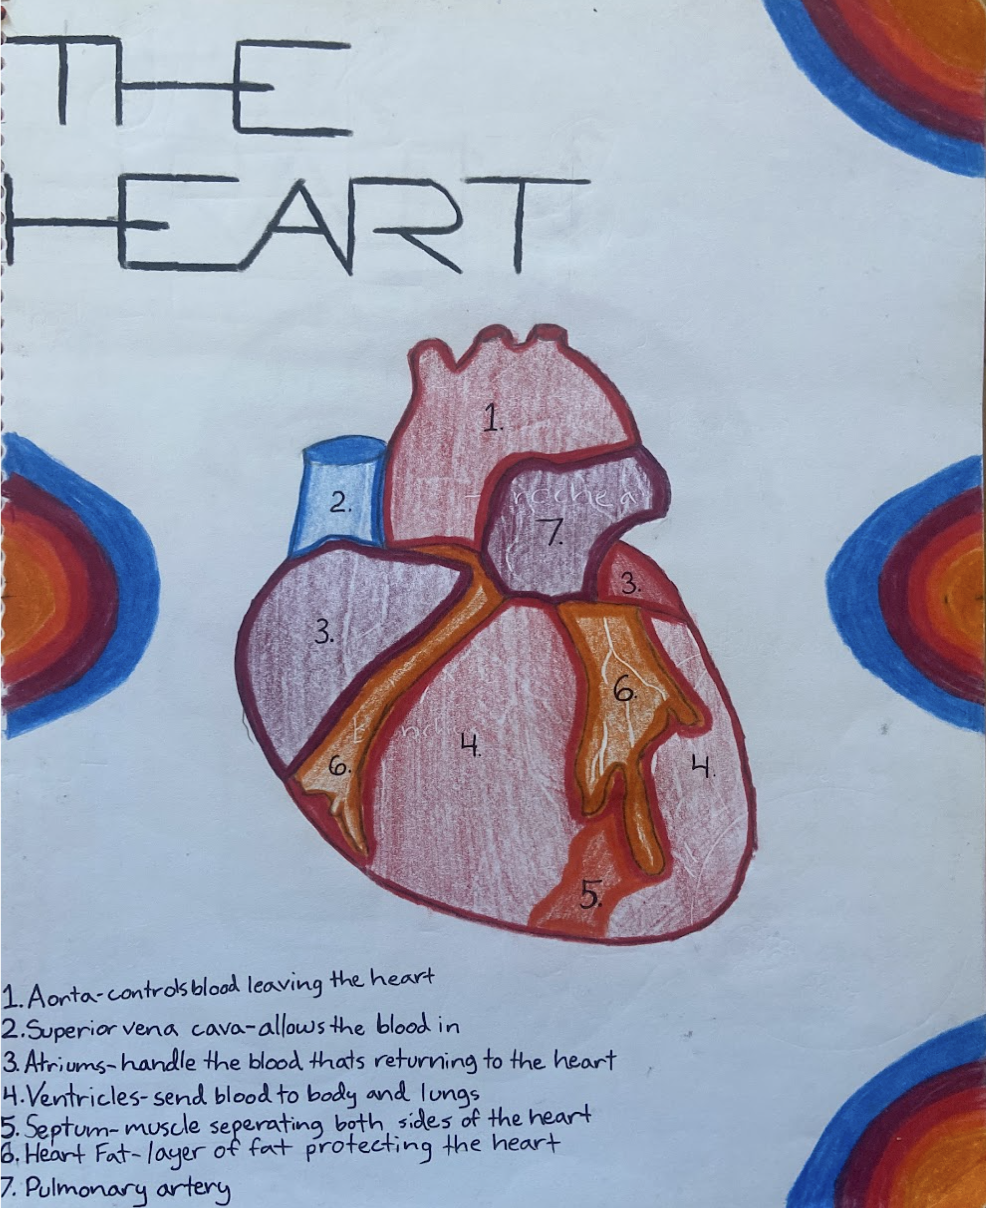 THE
HEART
1.
2.
7.
3.
3.
6.
4.
4.
6.
5.
1. Aorta-controls blood leaving the heart
2. Superior vena cava-allows the blood in
3. Atriums-handle the blood thats returning to the heart
4. Ventricles-send blood to body and lungs
5. Septum-muscle seperating both sides of the heart
6. Heart Fat-layer of fat protecting the heart
7. Pulmonary artery